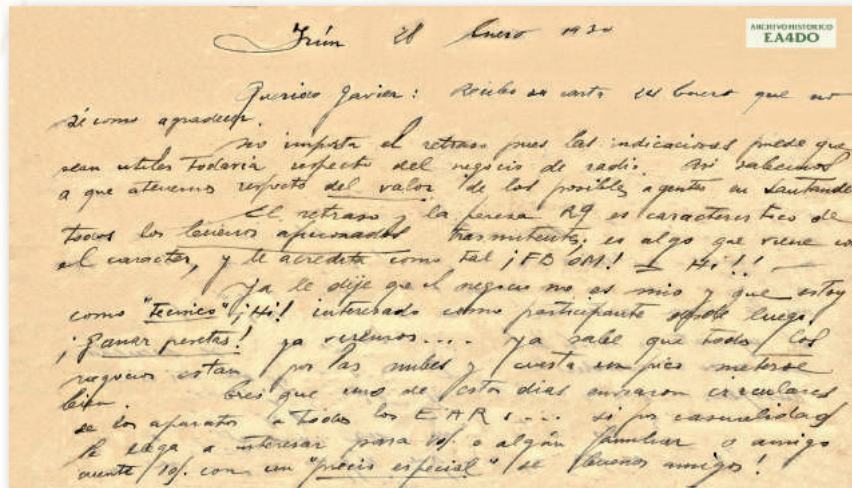 ARCHIVO HISTORICO
EA4DO
Irún 28 Enero 1930
Querido Javier: Recibo su carta de Enero que no
sé como agradecer.
No importa el retraso pues las indicaciones puede que
sean utiles todavia respecto del negocio de radio. Asi sabemos
a que atenernos respecto del valor de los posibles agentes en Santande
El retraso y la pereza R9 es caracteristico de
todos los buenos aficionados trasmitentes; es algo que viene co
el caracter, y le acredita como tal ¡FB OM! = Hi!! —
Ya le dije que el negocio no es mio y que estoy
como "tecnico" ¡Hi! interesado como participante desde luego.
¡Ganar pesetas! ya veremos.... ya sabe que todos los
negocios estan por las nubes y cuesta un pico meterse
bien. Creo que uno de estos dias enviaron circulares
de los aparatos a todos los EARs... si por casualidad
le llega a interesar para Vd. o algún familiar o amigo
cuente Vd. con un "precio especial" de buenos amigos!